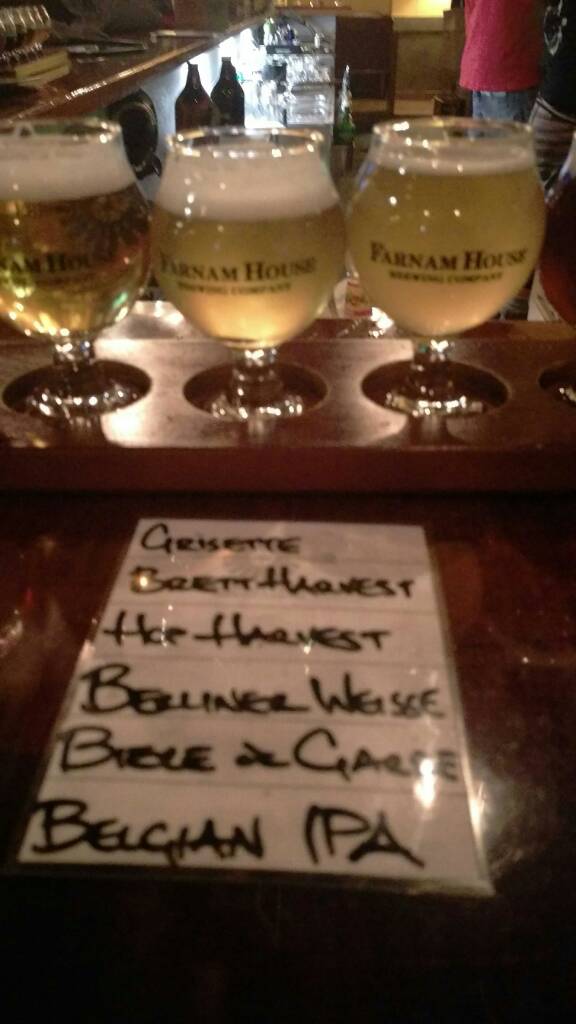 NAM HOU
FARNAM HOUSE
BREWING COMPANY
FARNAM HOUSE
BREWING COMPANY
GRISETTE
BRETT HARVEST
HOP HARVEST
BERLINER WEISSE
BIERE de GARDE
BELGIAN IPA